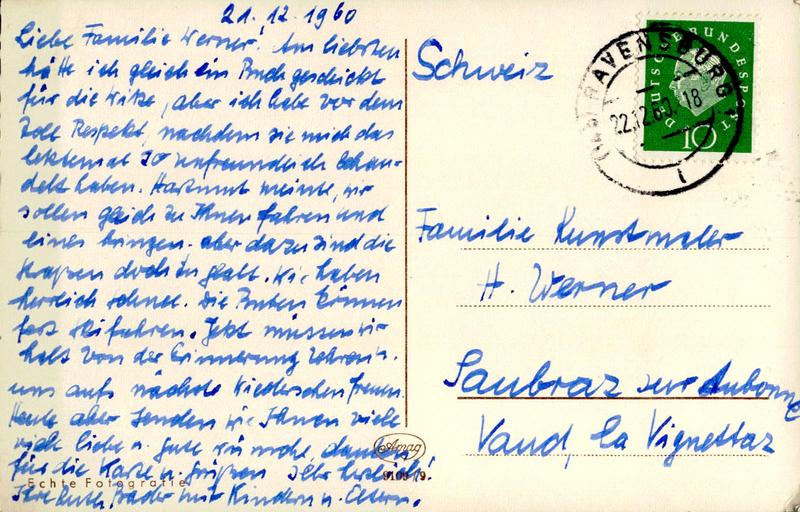 21.12.1960
Liebe Familie Werner! Am liebsten
hätte ich gleich ein Buch geschickt
für die Witze, aber ich habe vor dem
Zoll Respekt, nachdem sie mich das
letztemal so unfreundlich behan-
delt haben. Hartmut meinte, wir
sollen gleich zu Ihnen fahren und
eines bringen. aber dazu sind die
Straßen doch zu glatt. Wir haben
herrlich Schnee. Die Buben können
fest skifahren. Jetzt müssen wir
halt von der Erinnerung zehren u.
uns aufs nächste Wiedersehen freuen.
Heute aber senden wir Ihnen viele
viele liebe u. gute Wünsche, danken
für die Karte u. grüßen sehr herzlich!
Ihre Ruth Bader mit Kindern u. Eltern.
Echte Fotografie
Amag
9109/9.
Schweiz
DEUTSCHE BUNDESPOST
10
RAVENSBURG
22.12.60.-18
Familie Kunstmaler
H. Werner
Saubraz sur Aubonne
Vaud, la Vignettaz